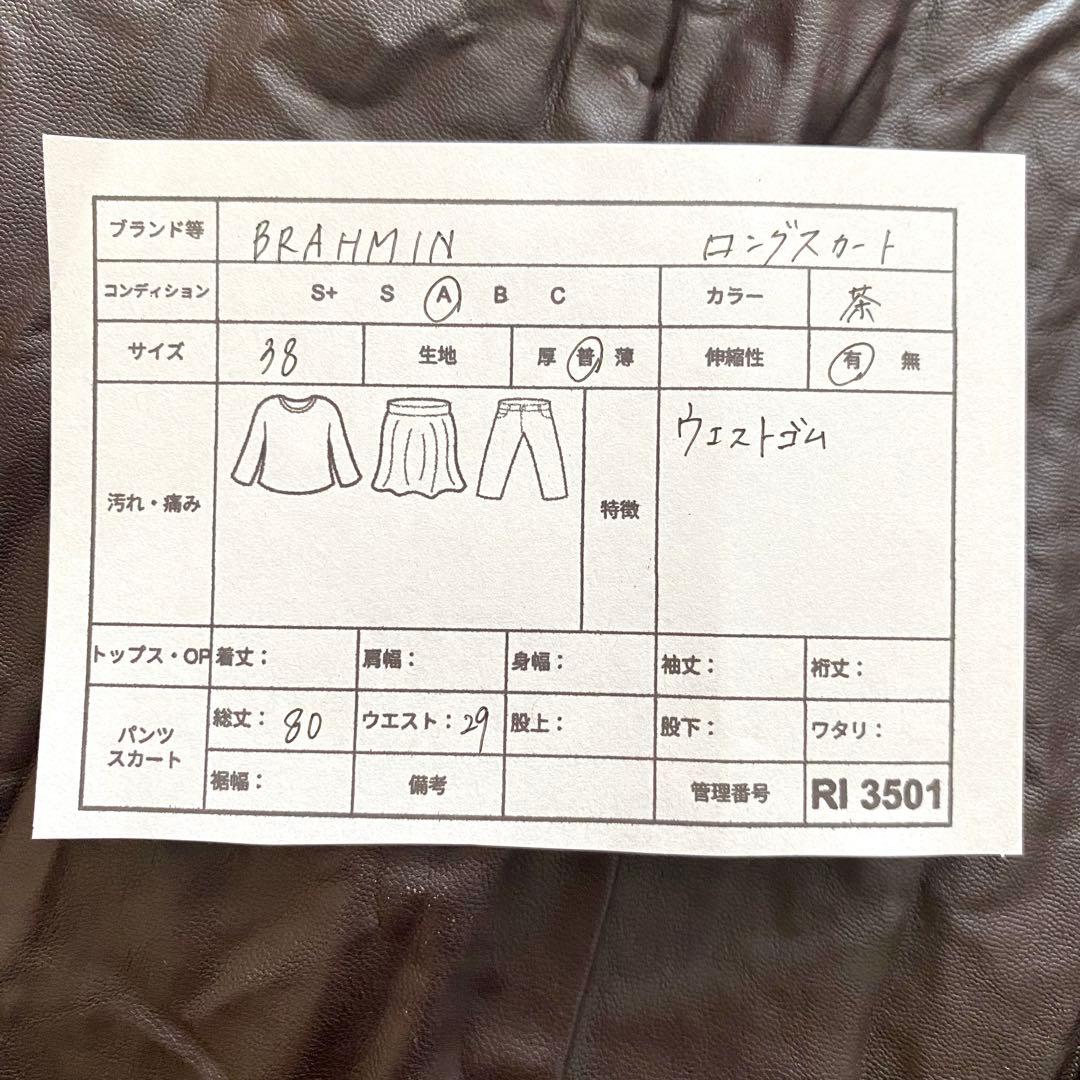 ブランド等 BRAHMIN ロングスカート
コンディション S+ S A B C カラー 茶
サイズ 38 生地 厚 普 薄 伸縮性 有 無
汚れ・痛み 特徴 ウエストゴム
トップス・OP 着丈： 肩幅： 身幅： 袖丈： 裄丈：
パンツ スカート 総丈： 80 ウエスト： 29 股上： 股下： ワタリ：
裾幅： 備考 管理番号 RI 3501